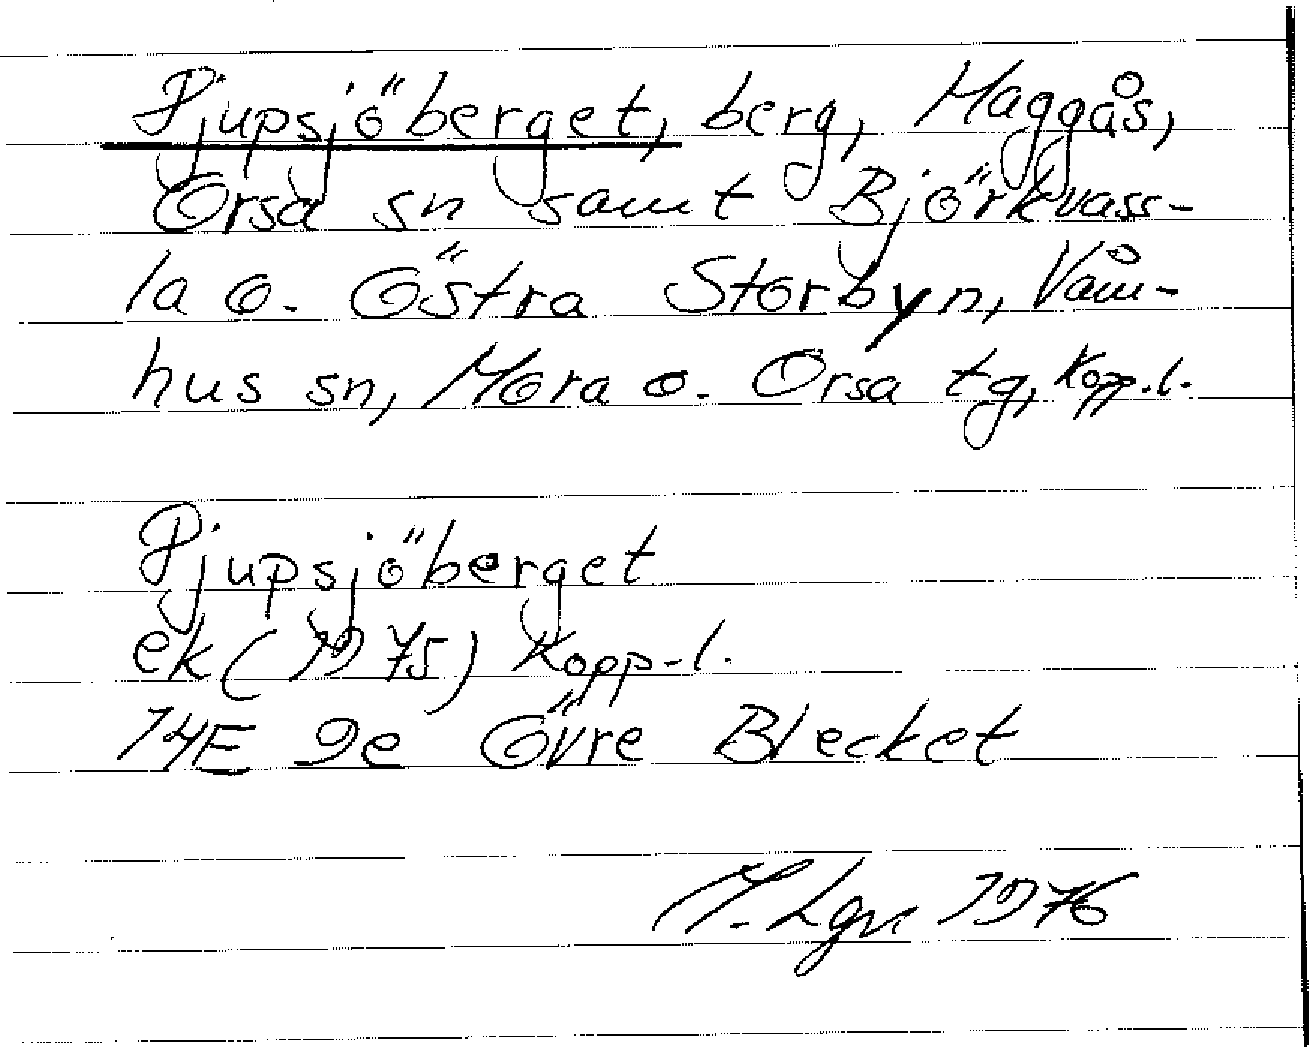 Djupsjöberget, berg, Maggås,
Orsa sn samt Björkvass-
la o. Östra Storbyn, Våm-
hus sn, Mora o. Orsa tg, Kopp.l.
Djupsjöberget
ek (1975) Kopp.l.
14E 9e Övre Blecket
M. Lgn 1976